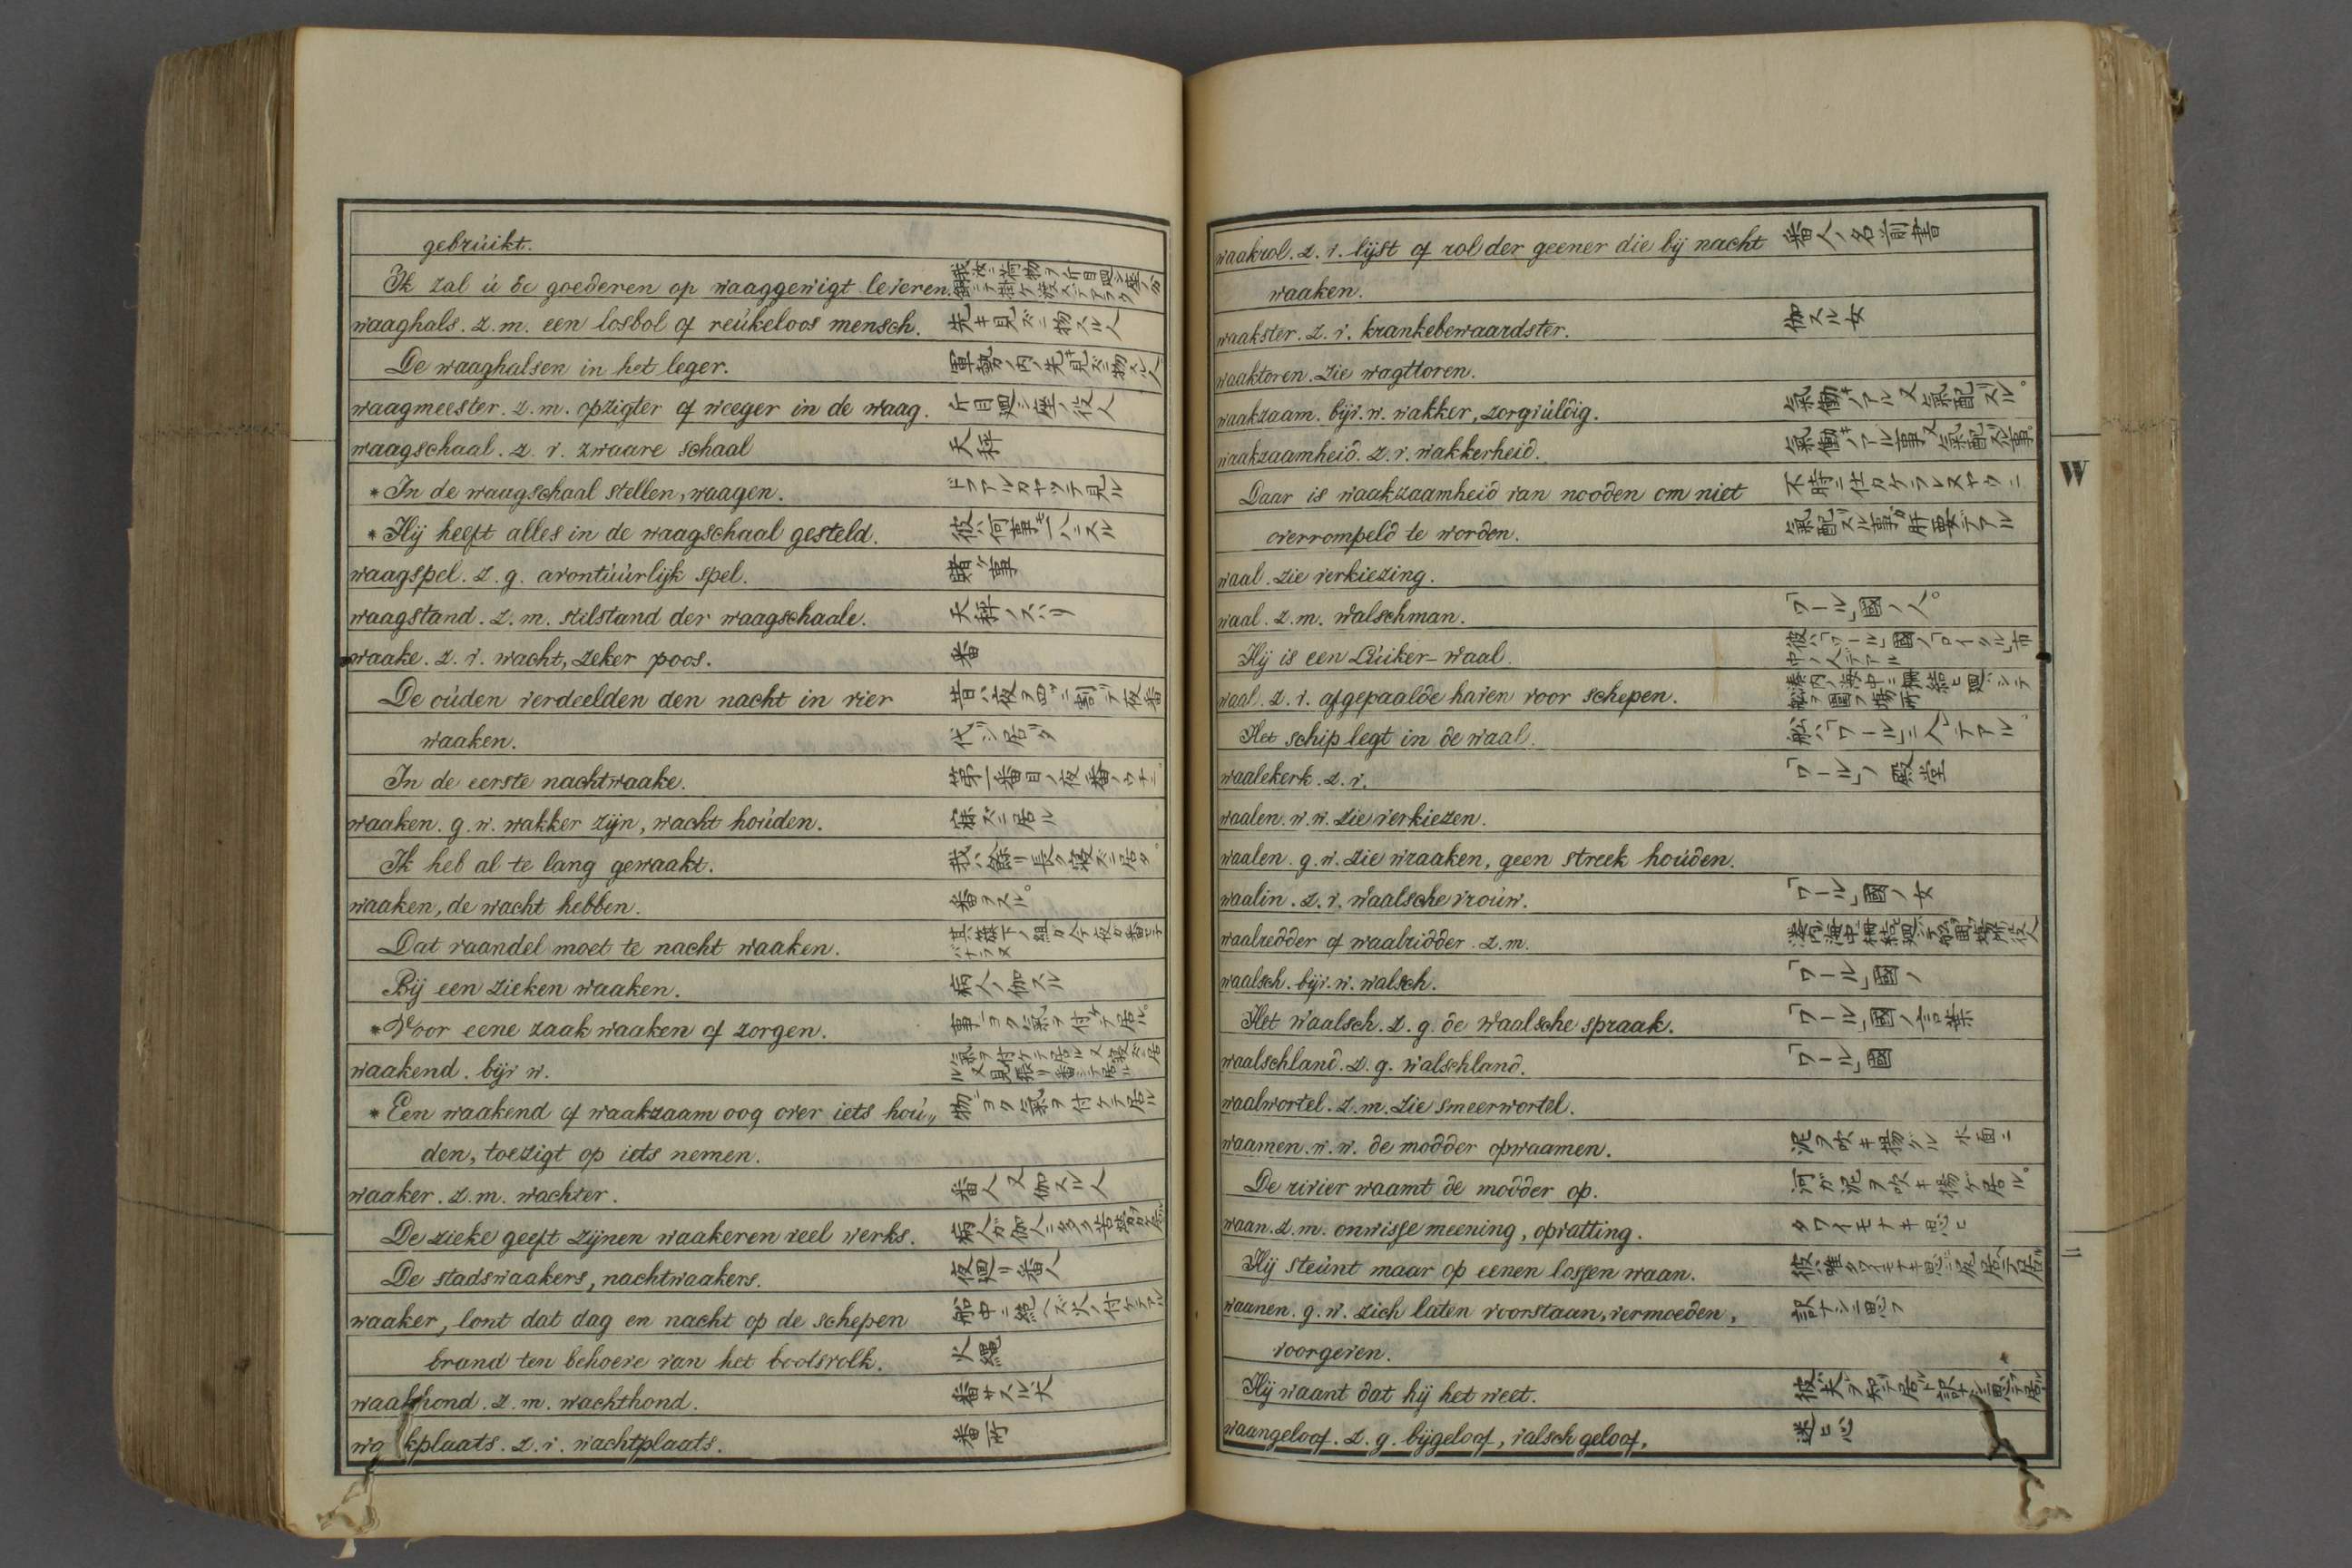 gebrúikt.
Ik zal ú &c goederen op waaggewigt leveren.
waaghals. z.m. een losbol of reúkeloos mensch. 先キ見ズニ物スル人
De waaghalsen in het leger. 軍勢ノ内ノ先キ見ズニ物スル人
waagmeester. z.m. opzigter of weeger in de waag. 斤目廻シ座ノ役人
waagschaal. z. v. zwaare schaal 天秤
*In de waagschaal stellen, waagen. ドフアルカヤツテ見ル
*Hij heeft alles in de waagschaal gesteld.
waagspel. z. g. avontúúrlijk spel. 賭ケ事
waagstand. z. m. stilstand der waagschaale. 天秤ノスハリ
waake. z. v. wacht, zeker poos. 番
De oúden verdeelden den nacht in vier 昔ハ夜ヲ四ツニ割リテ夜番
waaken. 代シ居タ
In de eerste nachtwaake. 第一番目ノ夜番ノウチニ
waaken. g. w. wakker zijn, wacht hoúden. 寐ズニ居ル
Ik heb al te lang gewaakt. 我ハ餘リ長ク寝ズニ居タ。
waaken, de wacht hebben. 番ヲスル。
Dat vaandel moet te nacht waaken. 其旗下ノ組ガ今夜ガ番セ子バナラヌ
Bij een zieken waaken. 病人ノ伽スル
*Voor eene zaak waaken of zorgen. 事ニヨク氣ヲ付ケテ居ル。
waakend. bijv w. 氣ヲ付ケテ居ル又寝ズニ居ル又見張リ番シテ居ル
*Een waakend of waakzaam oog over iets hoú„ 物ニヨク氣ヲ付ケテ居ル
den, toezigt op iets nemen.
waaker. z. m. wachter. 番人又伽スル人
De zieke geeft zijnen waakeren veel werks.
De stadswaakers, nachtwaakers. 夜廻リ番人
waaker, lont dat dag en nacht op de schepen 船中ニ絶ヘズ火ノ付ケテアル
brand ten behoeve van het bootsvolk. 火縄
waakhond. z. m. wachthond. 番サスル犬
wa kplaats. z. v. wachtplaats. 番所
waakrol. z. v. lijst of rol der geener die bij nacht 番人ノ名前書
waaken.
waakster. z. v. krankebewaardster. 伽スル女
waaktoren. zie wagttoren.
waakzaam. bijv. w. wakker, zorgvúldig. 氣働キノアル又氣配リスル。
waakzaamheid. z. v. wakkerheid. 氣働キノアル事又氣配リスル事。
Daar is waakzaamheid van nooden om niet 不時ニ仕カケラレヌヤウニ
overrompeld te worden. 氣配リスル事ガ肝要デアル
waal. zie verkiezing.
waal. z. m. walschman. 「ワール」國ノ人。
Hij is een Lúiker-waal.
waal. z. v. afgepaalde haven voor schepen. 湊内ノ海中ニ柵結ヒ廻ハシテ舩ヲ圍フ場所
Het schip legt in de waal. 舩ハ「ワール」ニ入レテアル
waalekerk. z. v. 「ワール」ノ殿堂
waalen. w. w. zie verkiezen.
waalen. g. w. zie wraaken, geen streek hoúden.
waalin. z. v. waalsche vroúw. 「ワール」國ノ女
waalredder of waalridder. z. m.
waalsch. bijv. w. walsch. 「ワール」國ノ
Het waalsch. z. g. de waalsche spraak. 「ワール」國ノ言葉
waalschland. z. g. walschland. 「ワール」國
waalwortel. z. m. zie smeerwortel.
waamen. w. w. de modder opwaamen. 泥ヲ吹キ揚グル 水面ニ
De rivier waamt de modder op. 河ガ泥ヲ吹キ揚ゲ居ル。
waan. z. m. onwisse meening, opvatting. タワイモナキ思ヒ
Hij steúnt maar op eenen lossen waan.
waanen. g. w. zich laten voorstaan, vermoeden, 訳ナシニ思フ
voorgeven.
Hij waant dat hij het weet.
waangeloof. z. g. bijgeloof, valsch geloof, 迷ヒ心
W
二